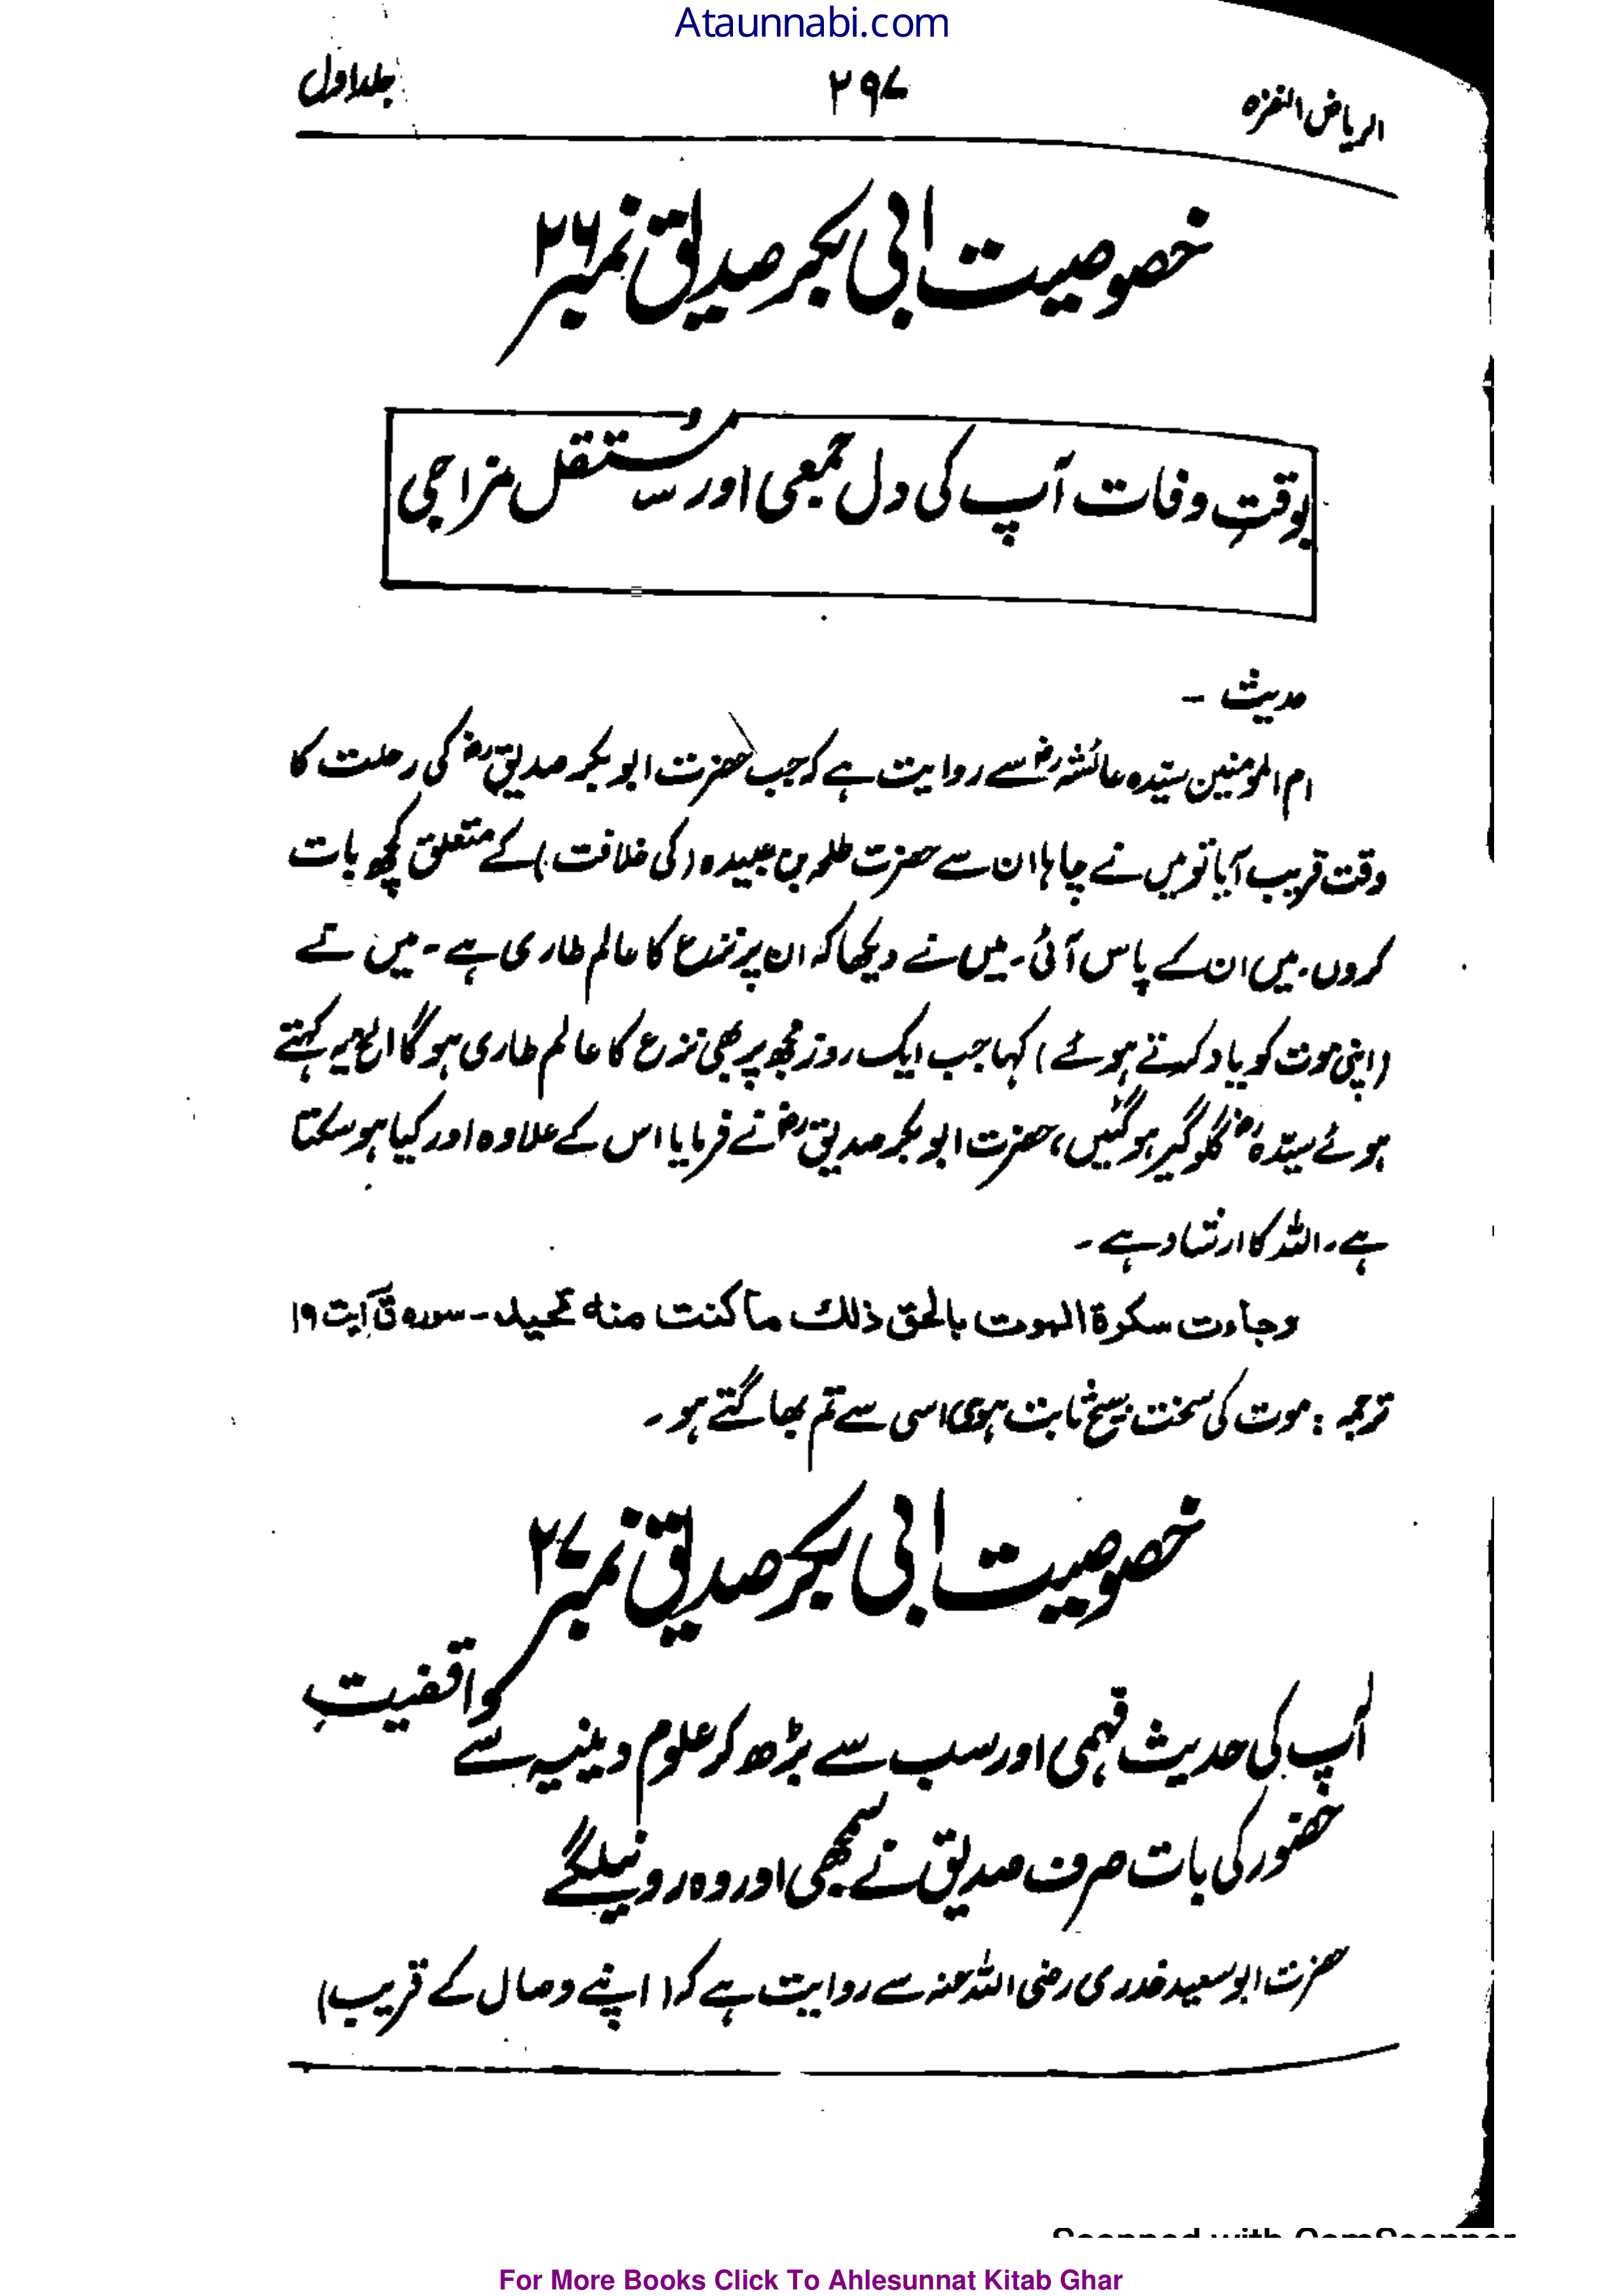 Ataunnabi.com
الریاض النضرہ ۲۹۷ جلد اول
خصوصیت ابی بکر صدیق نمبر ۲۶
بوقتِ وفات آپ کی دل جمعی اور مستقل مزاجی
حدیث ۔
ام المؤمنین سیّدہ عائشہؓ سے روایت ہے کہ جب حضرت ابو بکر صدیقؓ کی رحلت کا
وقت قریب آیا تو میں نے چاہا ان سے حضرت طلحہ بن عبیدہ (کی خلافت) کے متعلق کچھ بات
کروں۔ میں ان کے پاس آئی۔ میں نے دیکھا کہ ان پر نزع کا عالم طاری ہے۔ میں نے
(اپنی موت کو یاد کرتے ہوئے) کہا جب ایک روز مجھ پر بھی نزع کا عالم طاری ہو گا الخ یہ کہتے
ہوئے سیّدہؓ گلوگیر ہو گئیں، حضرت ابو بکر صدیقؓ نے فرمایا اس کے علاوہ اور کیا ہو سکتا
ہے۔ اللہ کا ارشاد ہے ۔
وجاءت سکرة الموت بالحق ذلك ما کنت منه تحید ۔ سورہ قٓ آیت ۱۹
ترجمہ : موت کی سخت سچ ثابت ہوی اسی سے تم بھاگتے ہو۔
خصوصیت ابی بکر صدیق نمبر ۲۷
آپ کی حدیث فہمی اور سب سے بڑھ کر علوم دینیہ سے واقفیت
حضور کی بات صرف صدیق نے سمجھی اور وہ رونے لگے
حضرت ابو سعید خدری رضی اللہ عنہ سے روایت ہے کہ (اپنے وصال کے قریب)
Scanned with CamScanner
For More Books Click To Ahlesunnat Kitab Ghar